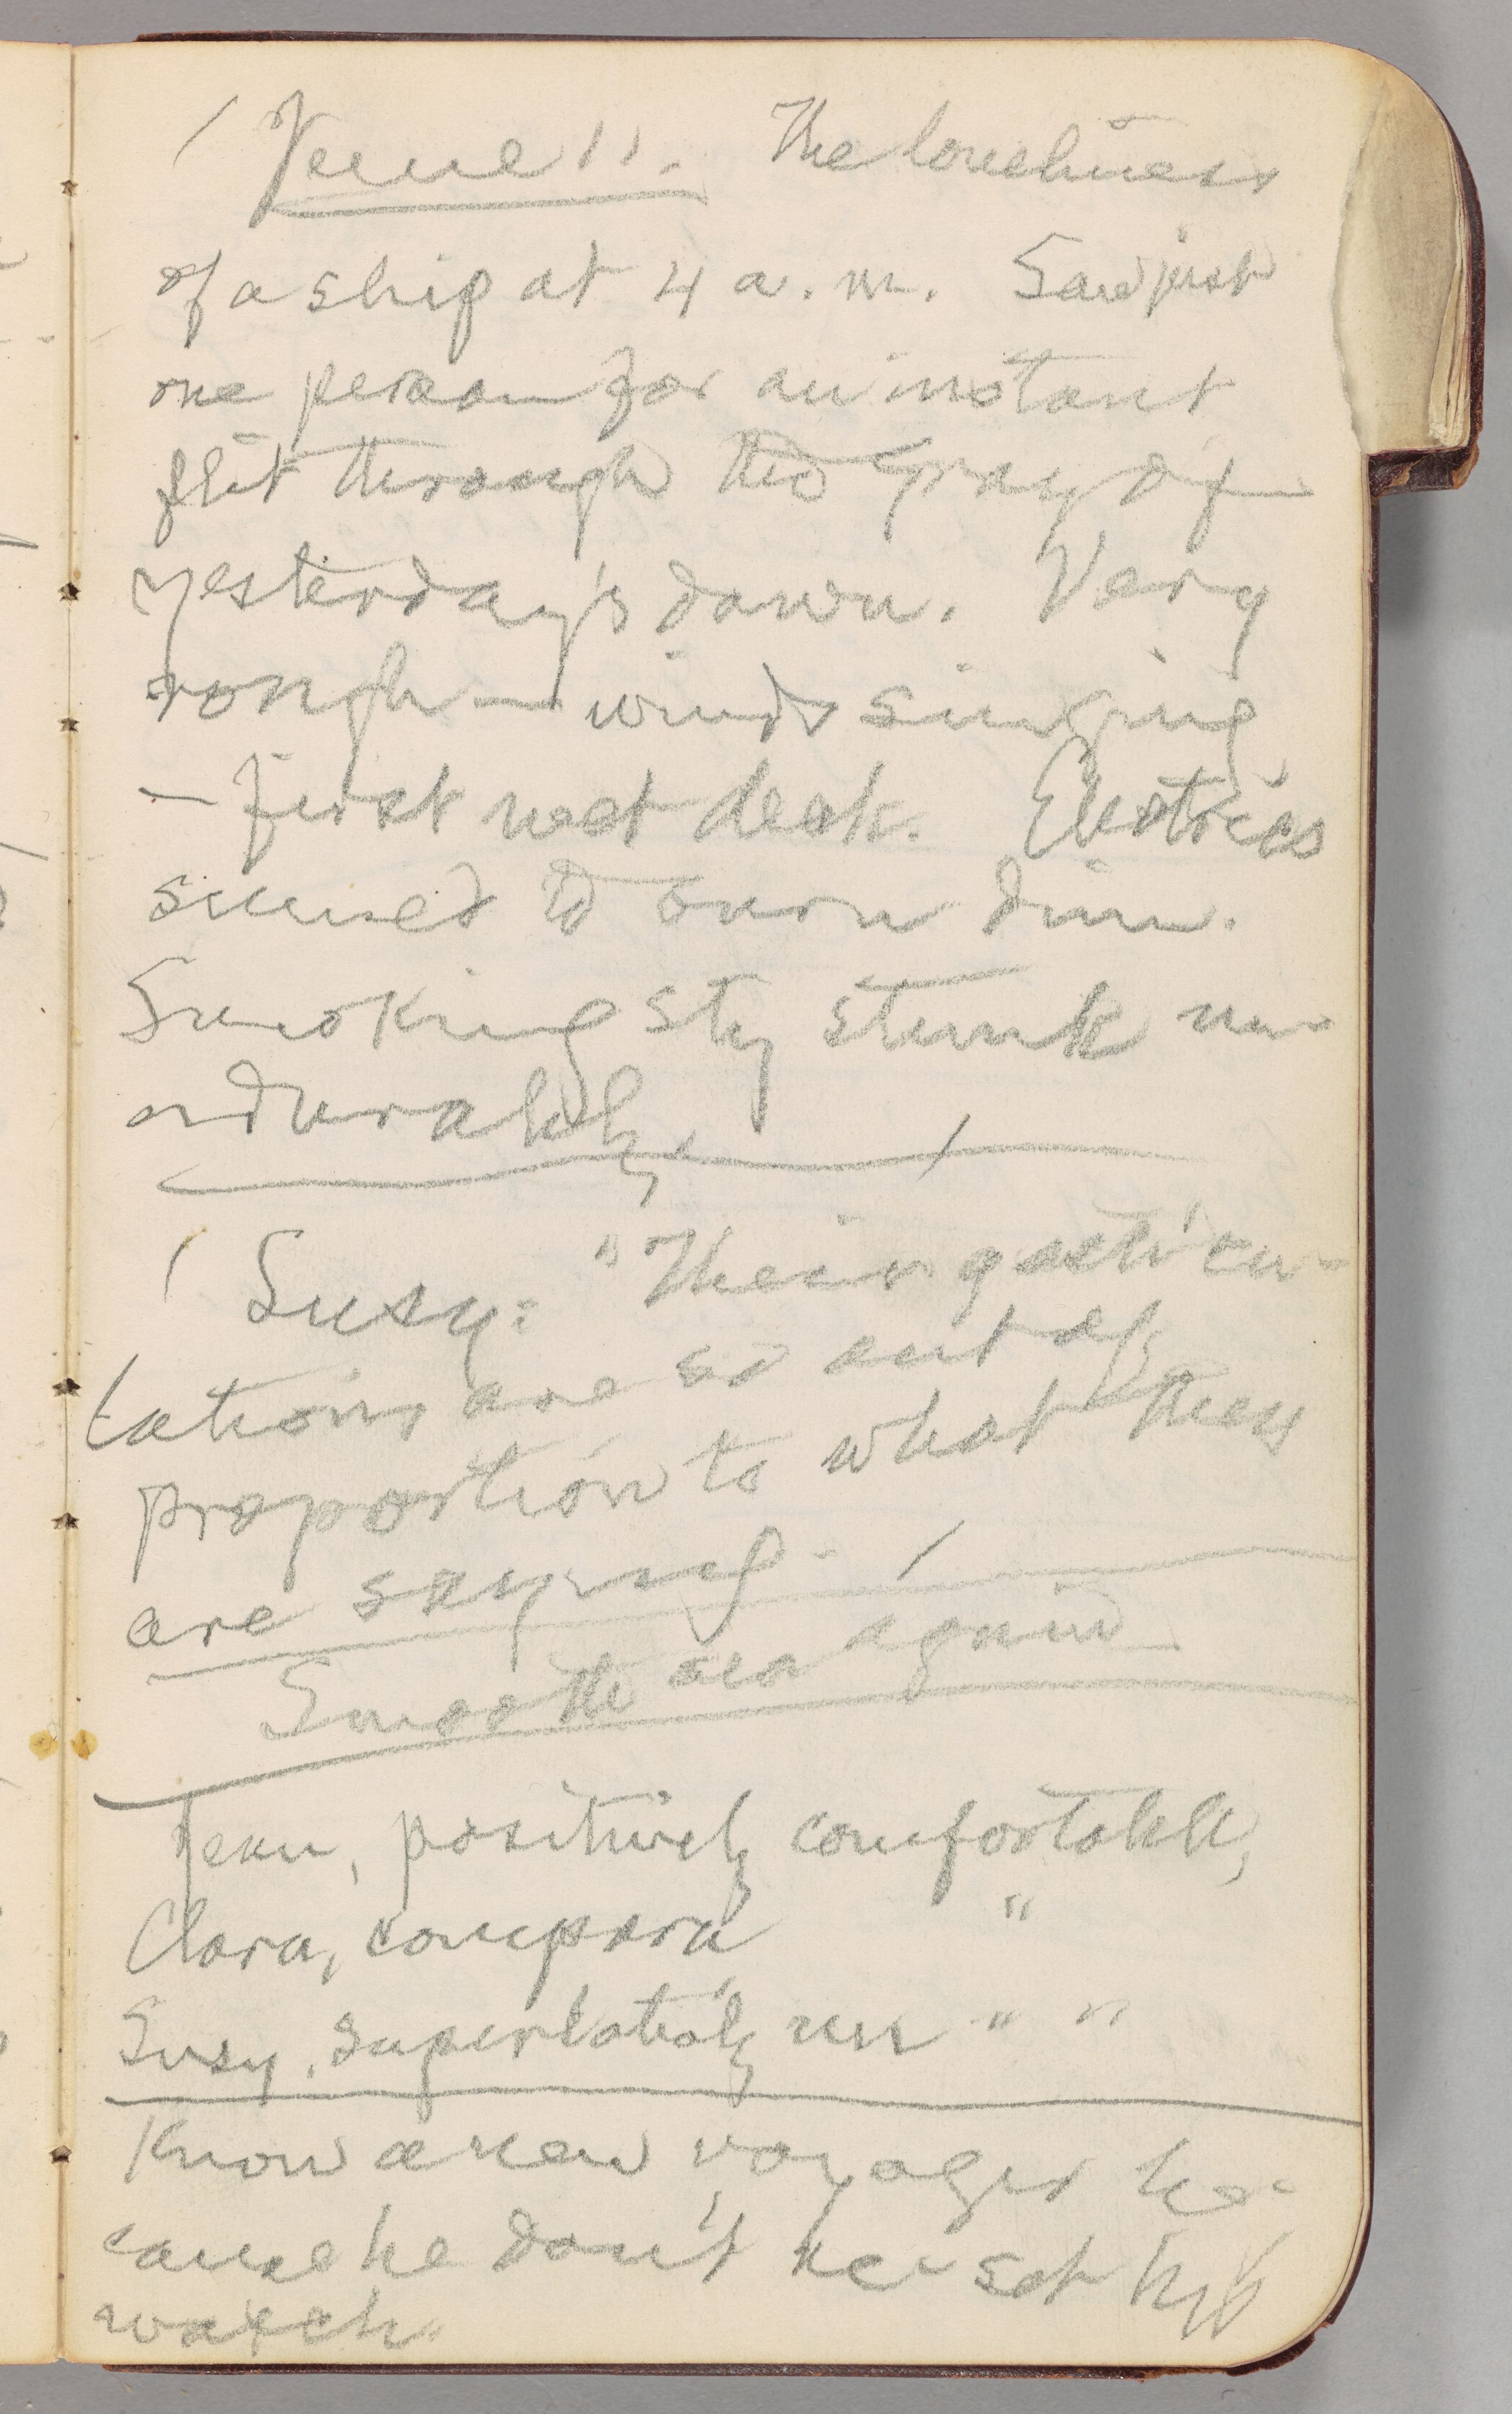 June 11. The loneliness
of a ship at 4 a.m. Saw just
one person for an instant
flit through the gray of
yesterday's dawn. Very
rough — winds singing
— first wet deck. Electrics
seemed to burn dim.
Smoking sty stunk un-
endurably.
Susy: "Their gesticu-
lations are so out of
proportion to what they
are saying.
Smooth sea again
Jean, positively comfortable,
Clara, compara "
Susy, superlatively un " "
Know a new voyager be-
cause he don't re-set his
watch.